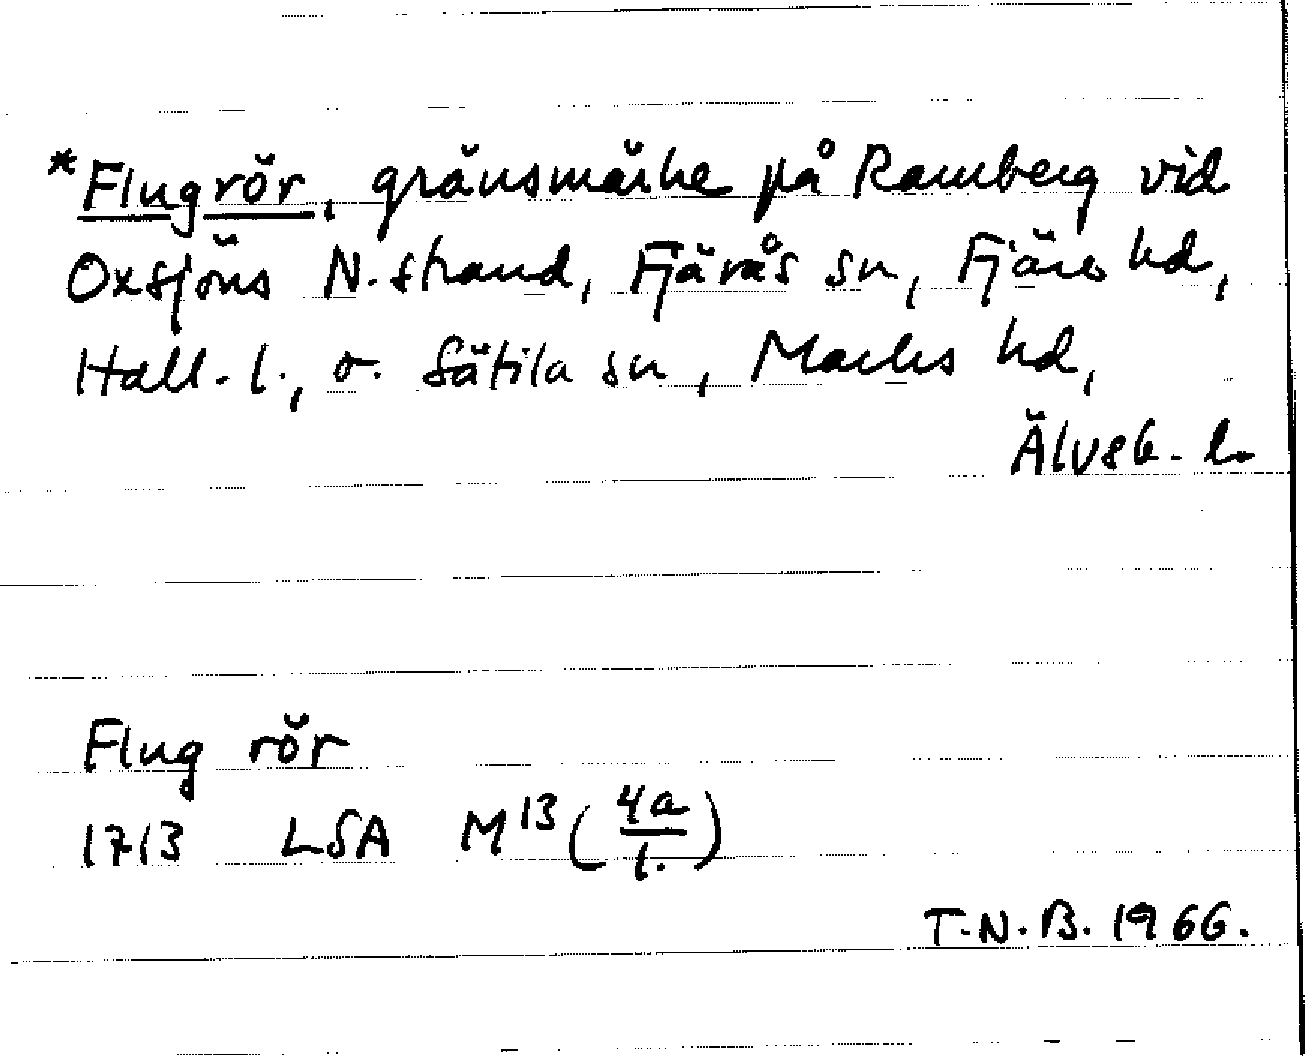 *Flugrör, gränsmärke på Ramberg vid
Oxsjöns N. strand, Fjärås sn, Fjäre hd,
Hall. l., o. Sätila sn, Marks hd,
Älvsb. l.
Flug rör
1713 LSA M¹³ (4a/1.)
T.N.B. 1966.